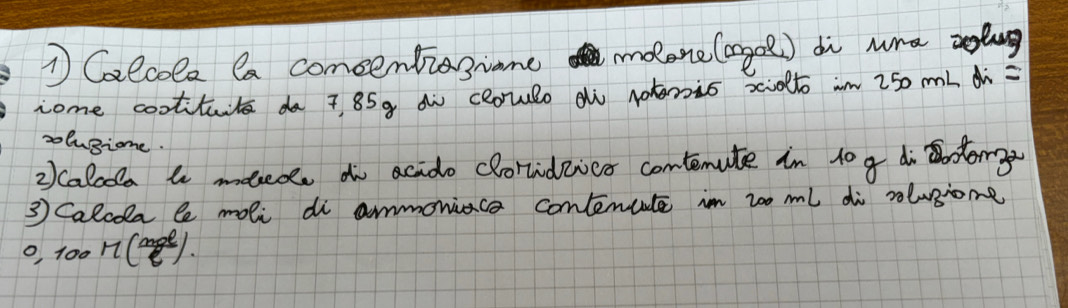 1) Calcola la concentrazione molare (mol/l) di una soluz
ione costituita da 7,85g di cloruro di potassio sciolto in 250 mL di =
soluzione.
2) Calcola le molecole di acido cloridrico contenute in 10 g di sostanza
3) Calcola le moli di ammoniaca contenute in 200 mL di soluzione
0,100 M (mol/l).